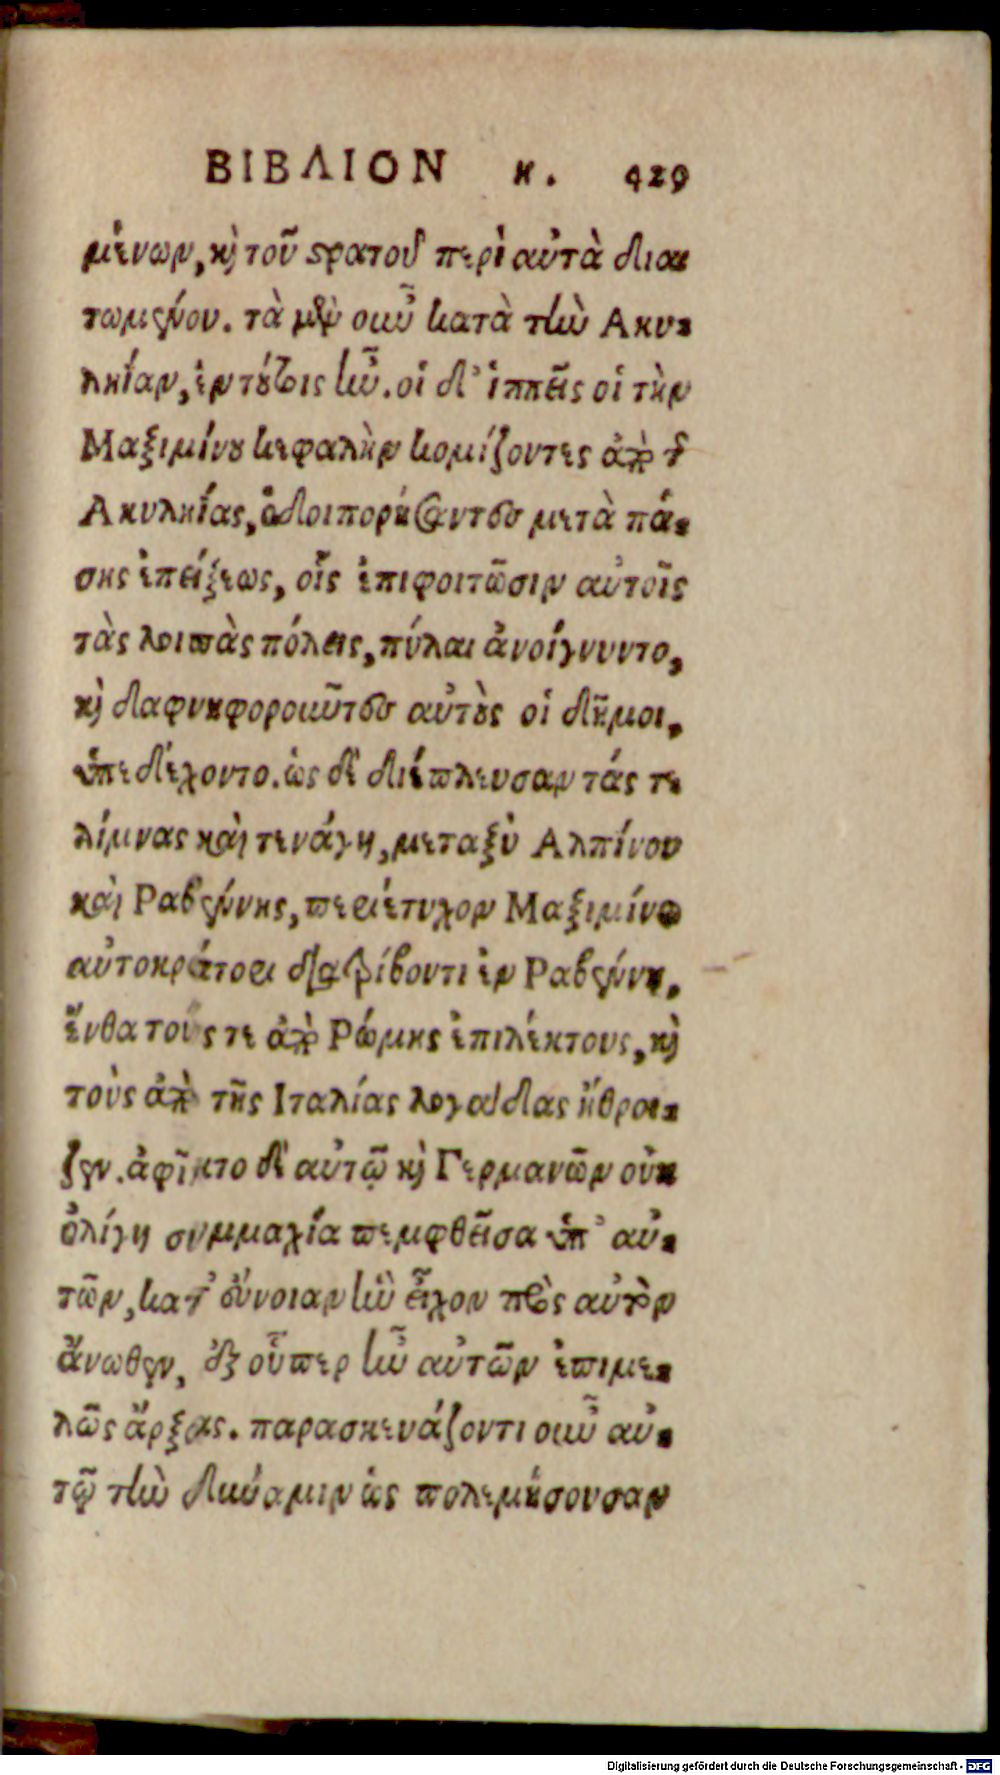 ΒΙΒΛΙΟΝ κ. 429
μένων, καὶ τοῦ στρατοῦ περὶ αὐτὰ διαι
τωμένου. τὰ μὲν οὖν κατὰ τὴν Ακυ-
ληΐαν, ἐν τούτοις ἦν. οἱ δ' ἱππεῖς οἱ τὴν
Μαξιμίνου κεφαλὴν κομίζοντες ἀπὸ τῆς
Ακυληΐας, ὁδοιπορήσαντες μετὰ πά-
σης ἐπείξεως, οἷς ἐπιφοιτῶσιν αὐτοῖς
τὰς λοιπὰς πόλεις, πύλαι ἀνοίγνυντο,
καὶ δαφνηφοροῦντες αὐτοὺς οἱ δῆμοι,
ὑπεδέχοντο. ὡς δὲ διέπλευσαν τάς τε
λίμνας καὶ τενάγη, μεταξὺ Αλπίνου
καὶ Ραβέννης, περιέτυχον Μαξιμίνῳ
αὐτοκράτορι διατρίβοντι ἐν Ραβέννῃ,
ἔνθα τούς τε ἀπὸ Ρώμης ἐπιλέκτους, καὶ
τοὺς ἀπὸ τῆς Ιταλίας λογάδας ἤθροι-
ζεν. ἀφῖκτο δὲ αὐτῷ καὶ Γερμανῶν οὐκ
ὀλίγη συμμαχία πεμφθεῖσα ὑπ' αὐ-
τῶν, κατ' εὔνοιαν ἣν εἶχον πρὸς αὐτὸν
ἄνωθεν, ἐξ οὗπερ ἦν αὐτῶν ἐπιμε-
λῶς ἄρξας. παρασκευάζοντι οὖν αὐ-
τῷ τὴν δύναμιν ὡς πολεμήσουσαν
Digitalisierung gefördert durch die Deutsche Forschungsgemeinschaft - DFG